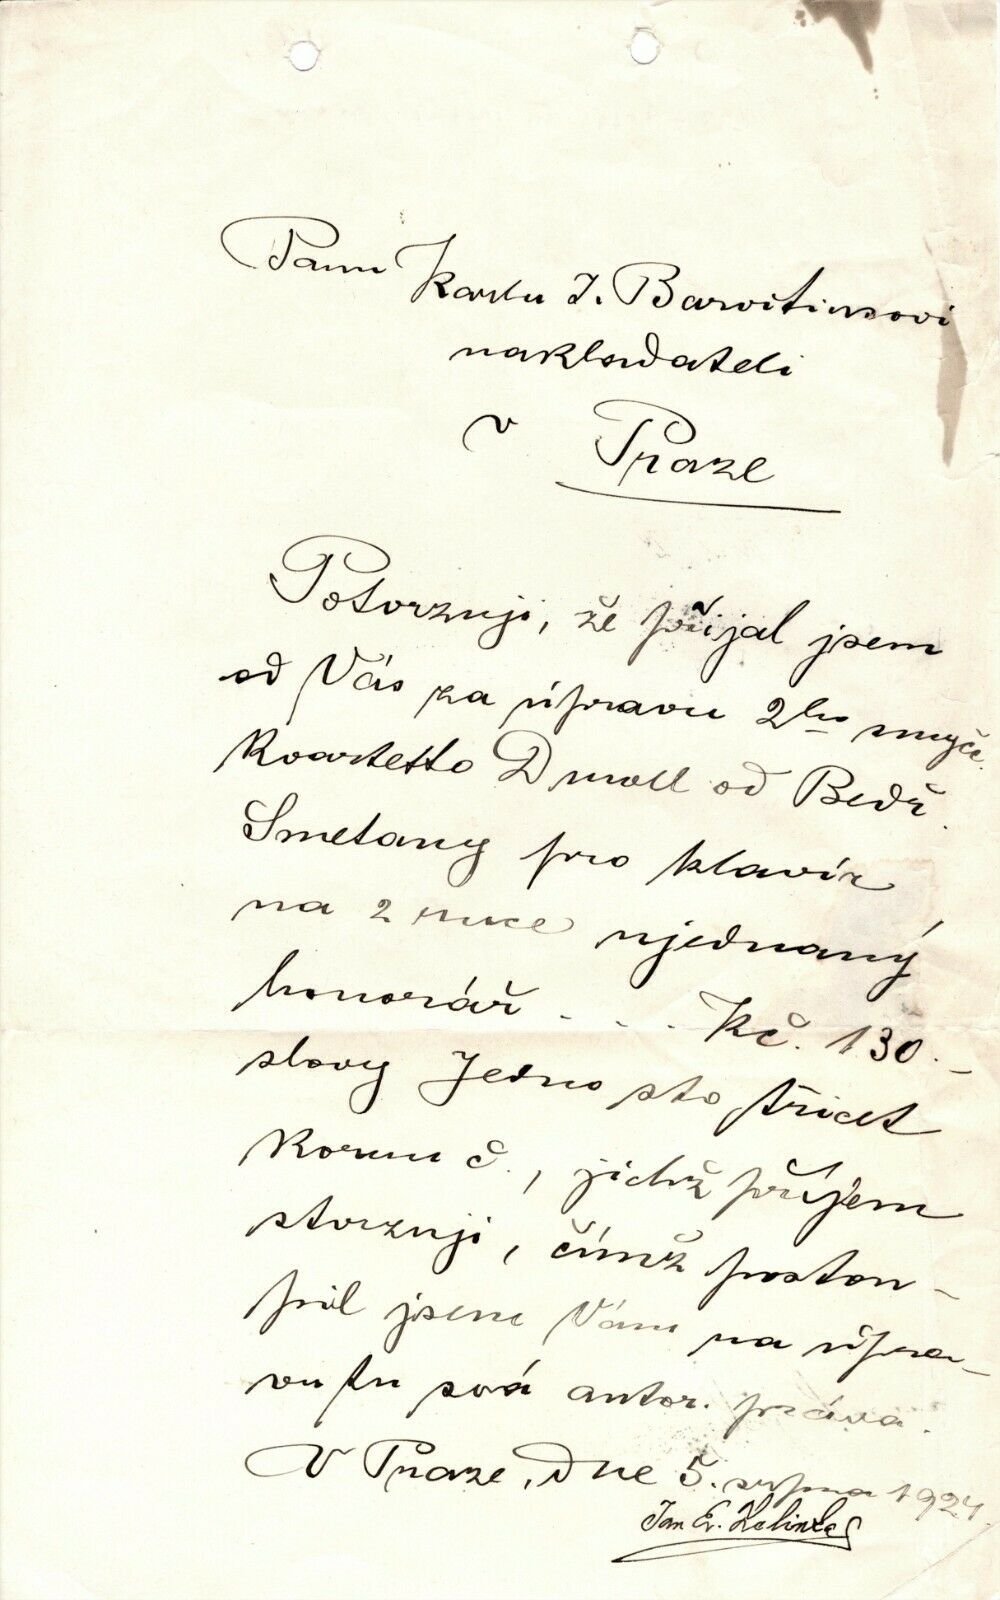 Panu Karlu J. Barvitiusovi
nakladateli
v Praze
Potvrzuji, že přijal jsem
od Vás za úpravu 2ho smyčc.
Kvartetto D moll od Bedř.
Smetany pro klavír
na 2 ruce ujednaný
honorář . . . Kč. 130.–
slovy Jedno sto třicet
Korun č., jichž příjem
stvrzuji, čímž postou-
pil jsem Vám na úpra-
vu tu svá autor. práva.
V Praze, dne 5. srpna 1924.
Jan Ev. Zelinka